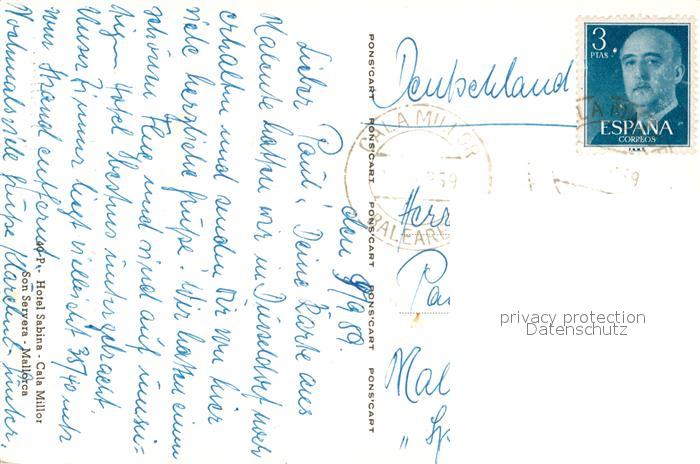 den 9/9 59.
Lieber Paul! Deine Karte aus
Malente hatten wir in Düsseldorf noch
erhalten und senden Dir von hier
viele herzliche Grüße. Wir hatten einen
schönen Flug und sind auf
Hotel untergebracht.
Unser Zimmer liegt vielleicht 35/40 mtr
vom Strand entfernt.
Nochmals viele Grüße
40-P. - Hotel Sabina - Cala Millor
Son Servera - Mallorca
PONS'CART PONS'CART PONS'CART PONS'CART PONS'CART
Deutschland
3
PTAS
ESPAÑA
CORREOS
F.N.M.T.
CALA MILLOR
59
BALEARE
59
Herr
Pau
Mal
privacy protection
Datenschutz